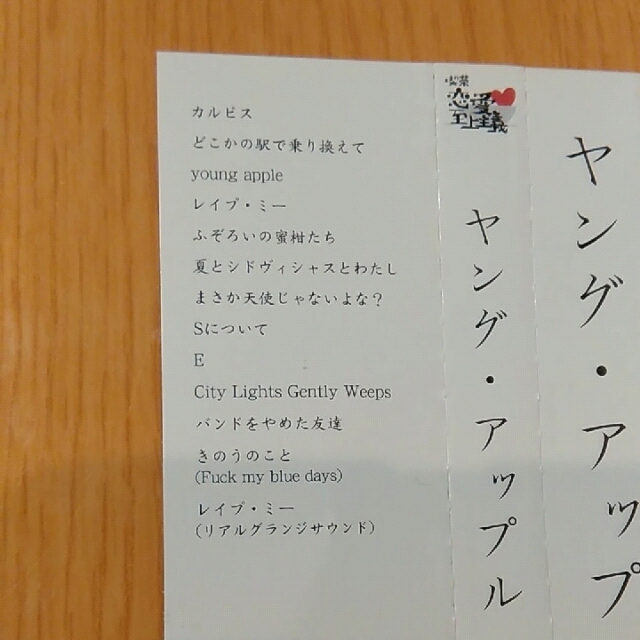 カルピス
どこかの駅で乗り換えて
young apple
レイプ・ミー
ふぞろいの蜜柑たち
夏とシドヴィシャスとわたし
まさか天使じゃないよな？
Sについて
E
City Lights Gently Weeps
バンドをやめた友達
きのうのこと
(Fuck my blue days)
レイプ・ミー
(リアルグランジサウンド)
喫茶
恋愛
至上主義
ヤング・アップル
ヤング・アップ